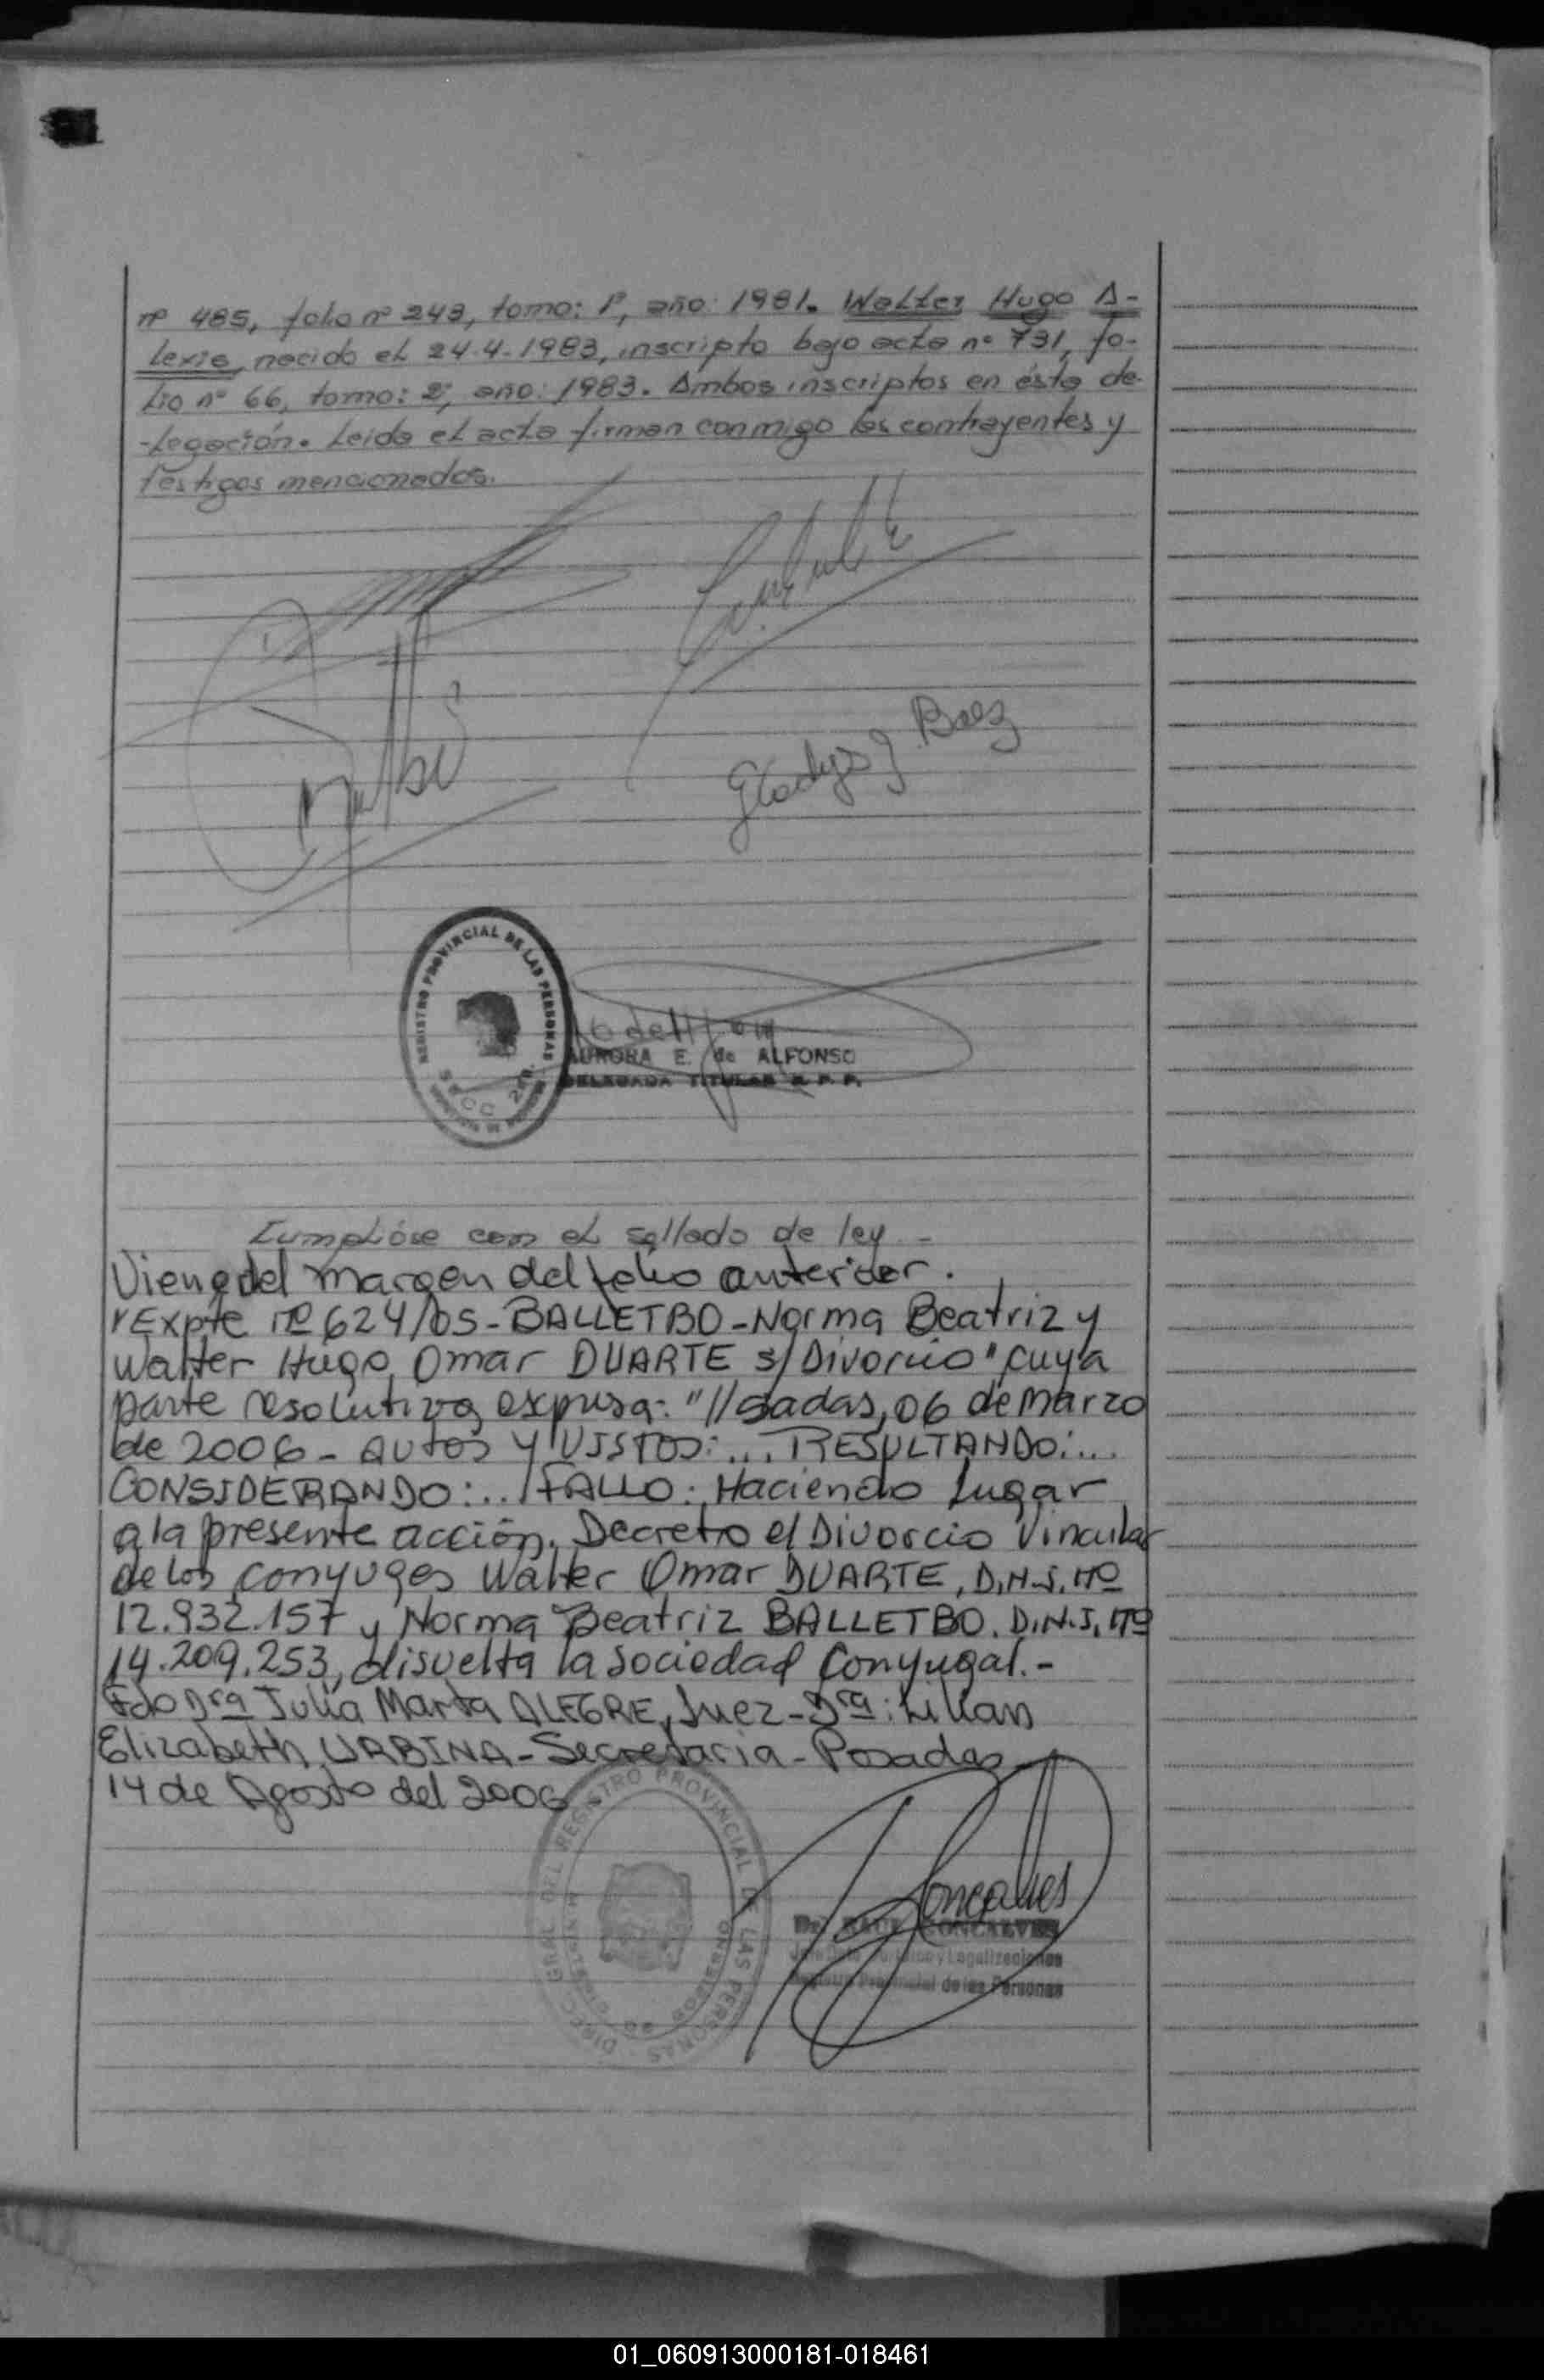 nº 485, folio nº 243, tomo: 1º, año: 1981. Walter Hugo A-
lexis, nacido el 24-4-1983, inscripto bajo acta nº 731, fo-
lio nº 66, tomo: 2º, año: 1983. Ambos inscriptos en ésta de-
-legación. Leida el acta firman conmigo los contrayentes y
testigos mencionados.
Gladys J. Baez
REGISTRO PROVINCIAL DE LAS PERSONAS
AURORA E. de ALFONSO
DELEGADA TITULAR R. P. P.
Cumplióse con el sellado de ley.-
Viene del margen del folio anterior.
"Expte nº 624/05-BALLETBO-Norma Beatriz y
Walter Hugo Omar DUARTE s/Divorcio" cuya
parte resolutiva expresa: "//sadas, 06 de marzo
de 2006- AUTOS Y VISTOS:... RESULTANDO:...
CONSIDERANDO:... FALLO: Haciendo lugar
a la presente acción. Decreto el Divorcio Vincular
de los conyuges Walter Omar DUARTE, D.N.I. Nº
12.932.157 y Norma Beatriz BALLETBO. D.N.I. Nº
14.209.253, disuelta la sociedad Conyugal.-
Fdo Dra Julia Marta ALEGRE, Juez-Dra: Lilian
Elizabeth URBINA-Secretaria-Posadas
14 de Agosto del 2006
DIREC. GRAL. DEL REGISTRO PROVINCIAL DE LAS PERSONAS
Goncalves
Dr. RAUL GONCALVES
y Legalizaciones
Registro Provincial de las Personas
01_060913000181-018461